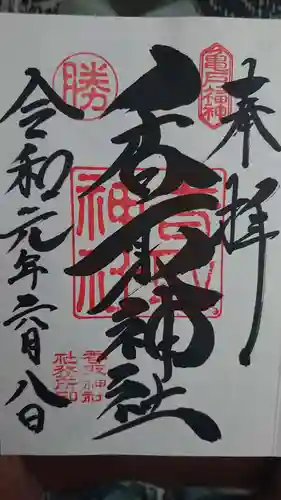 奉拝
亀戸福神
香取神社
香取神社
勝
香取神社
社務所印
令和元年六月八日